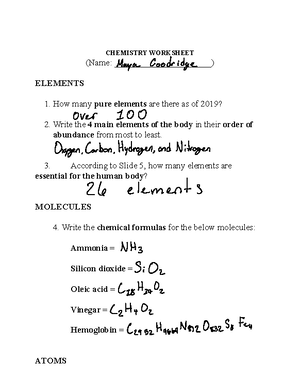 CHEMISTRY WORKSHEET
(Name: Maya Goodridge)
ELEMENTS
1. How many pure elements are there as of 2019?
over 100
2. Write the 4 main elements of the body in their order of
abundance from most to least.
Oxygen, Carbon, Hydrogen, and Nitrogen
3. According to Slide 5, how many elements are
essential for the human body?
26 elements
MOLECULES
4. Write the chemical formulas for the below molecules:
Ammonia = NH3
Silicon dioxide = SiO2
Oleic acid = C18H34O2
Vinegar = C2H4O2
Hemoglobin =
ATOMS